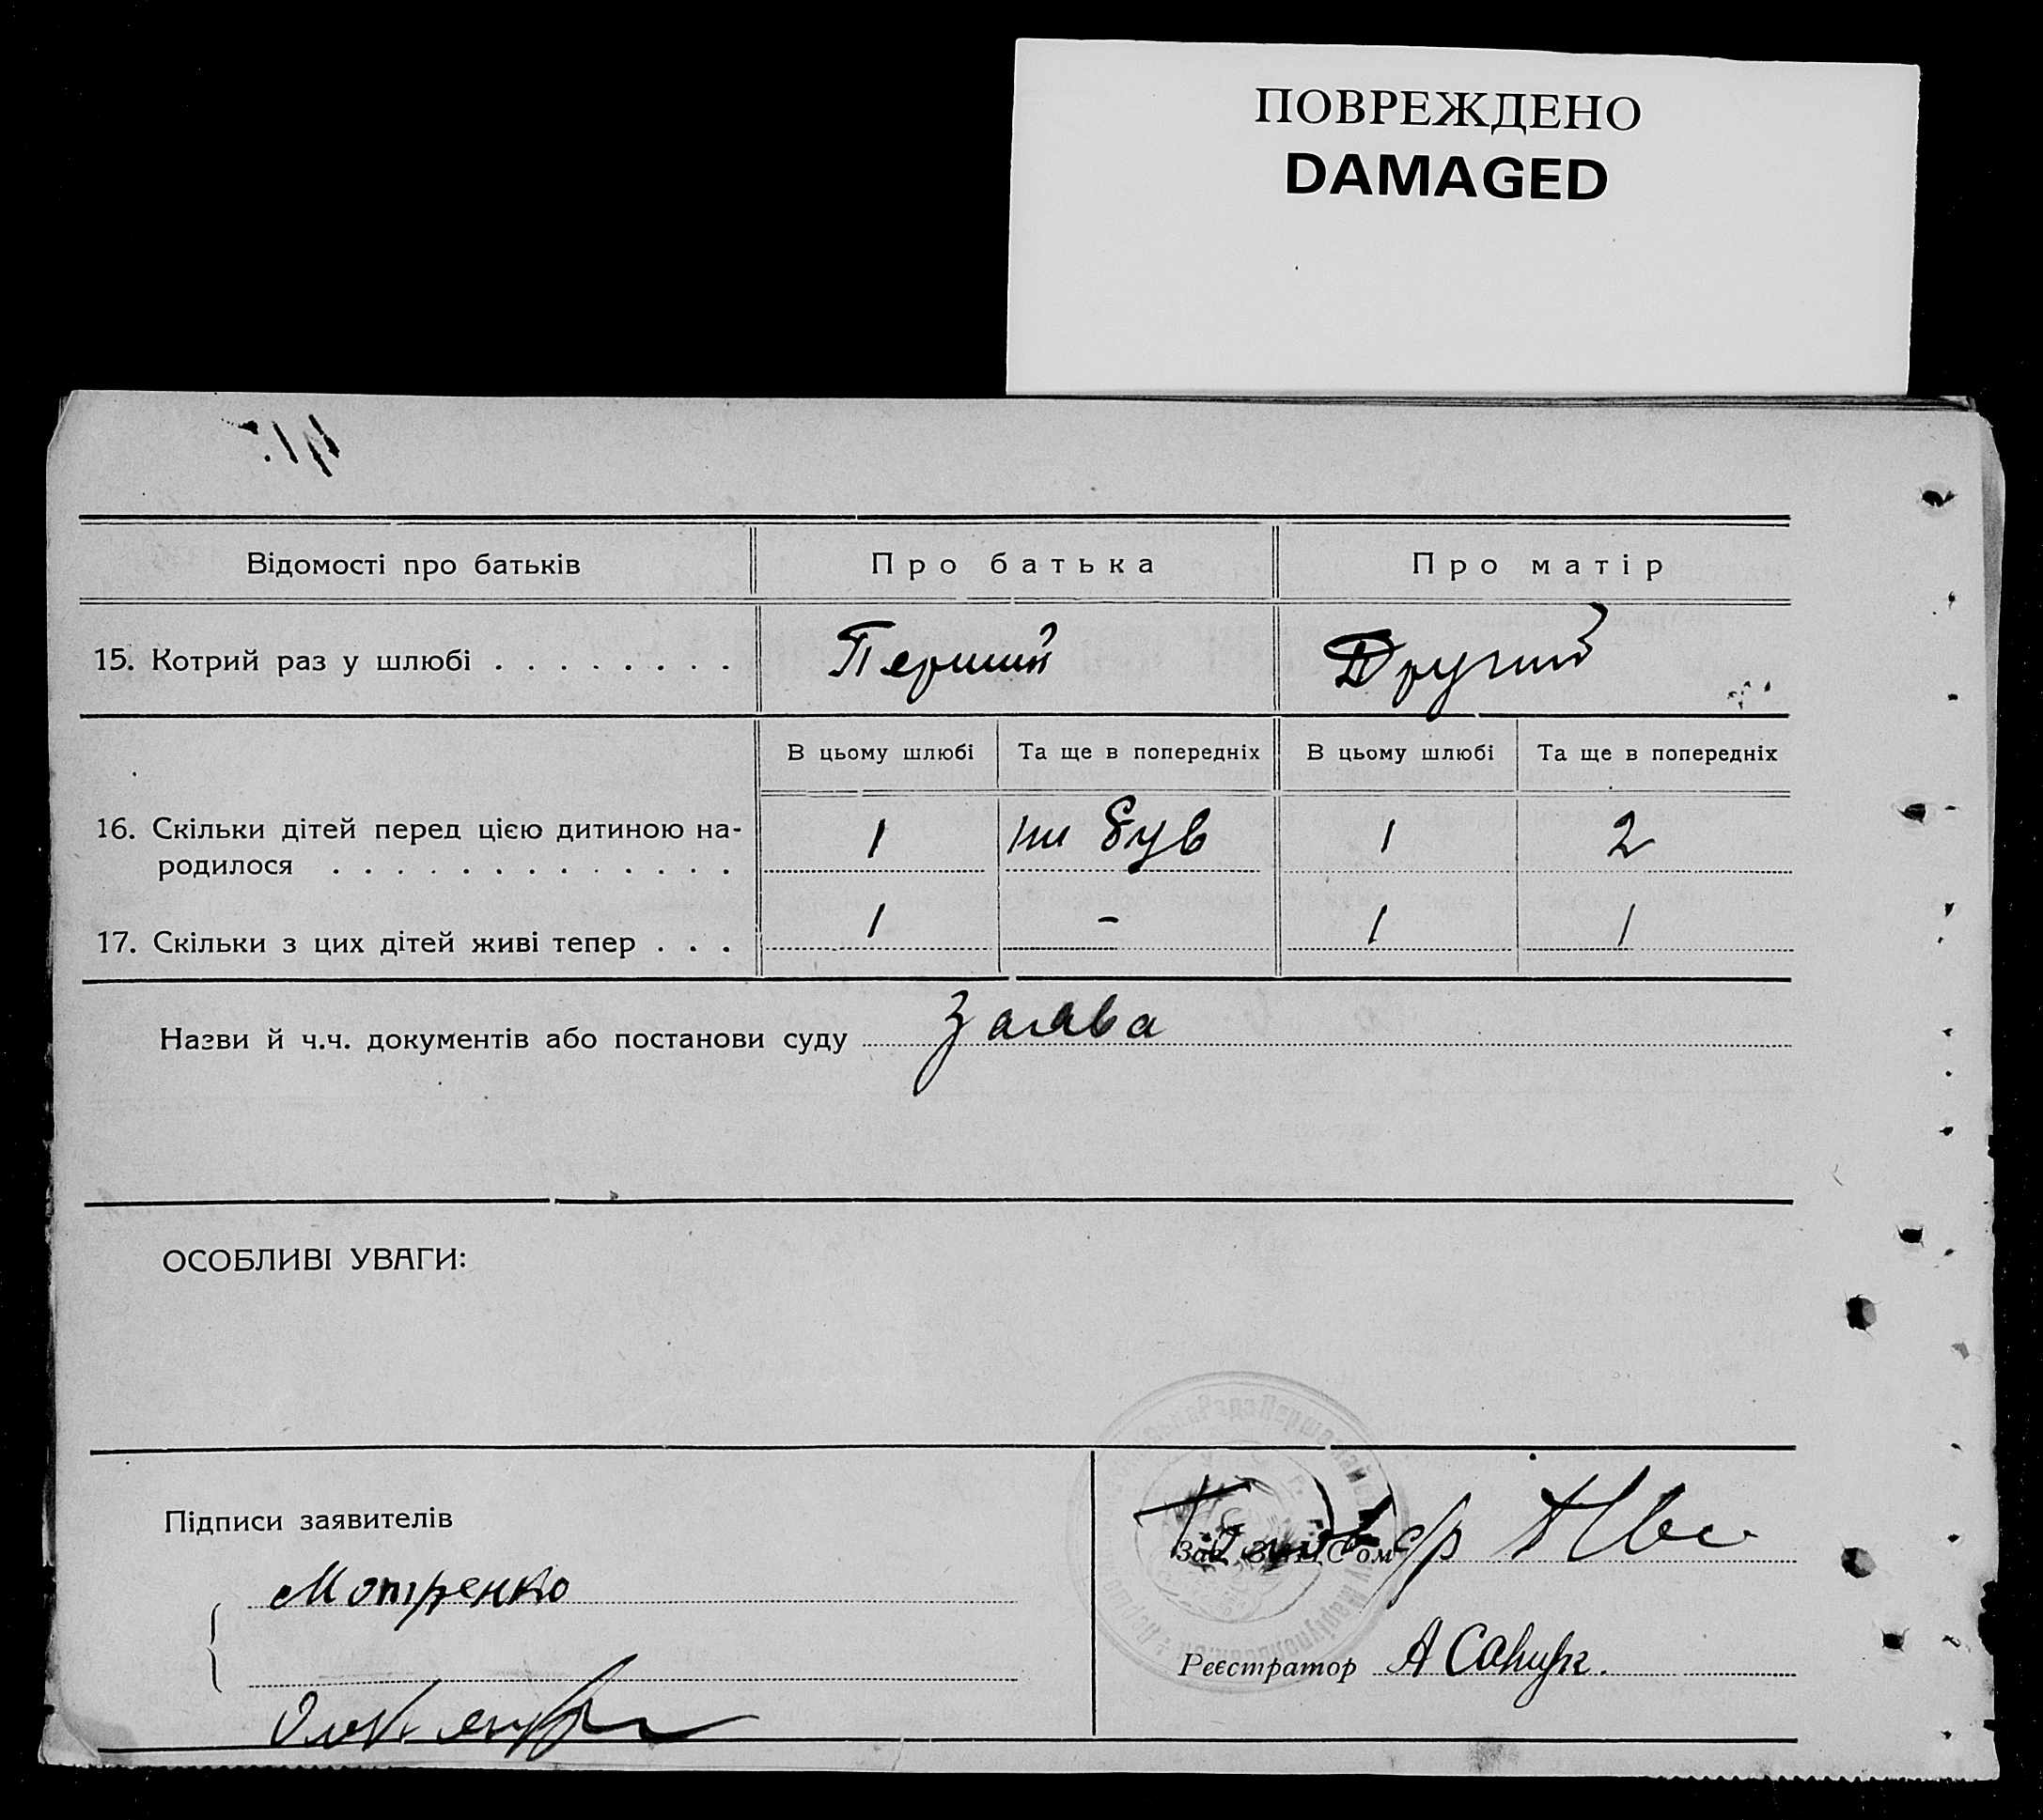 ПОВРЕЖДЕНО
DAMAGED
Відомості про батьків
Про батька
Про матір
15. Котрий раз у шлюбі
Перший
Другий
В цьому шлюбі
Та ще в попередніх
В цьому шлюбі
Та ще в попередніх
16. Скільки дітей перед цією дитиною на-
родилося
1
ни був
1
2
17. Скільки з цих дітей живі тепер
1
-
1
1
Назви й ч.ч. документів або постанови суду
Заява
ОСОБЛИВІ УВАГИ:
Підписи заявителів
Мотренко
Реєстратор А